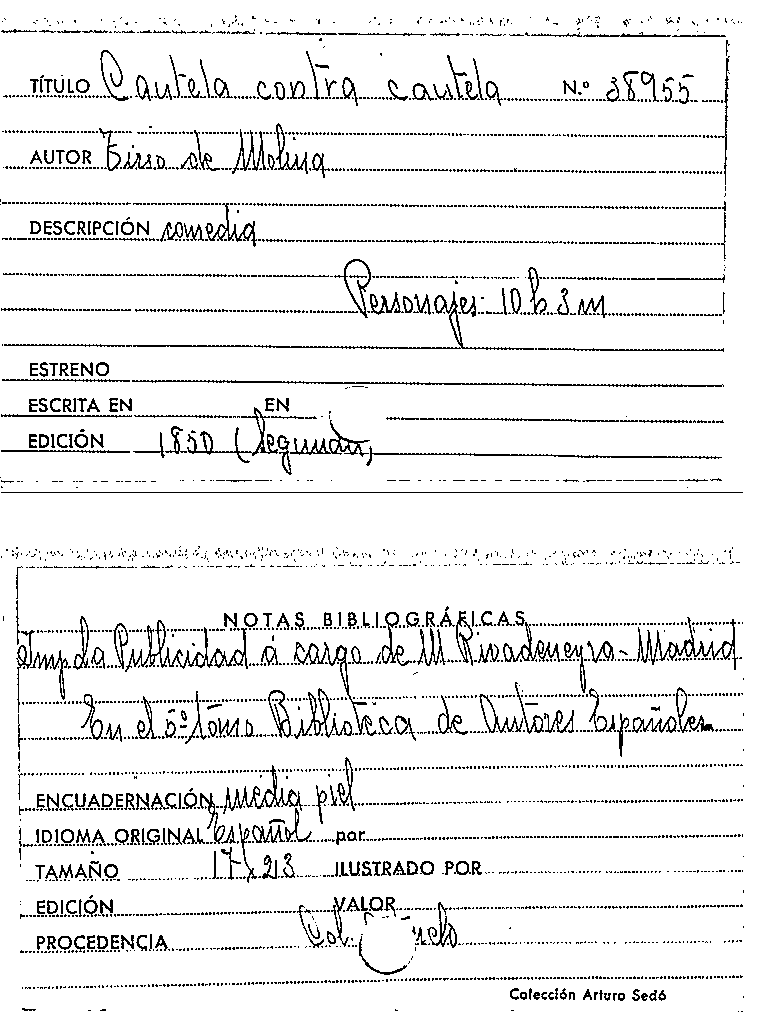 TÍTULO Cautela contra cautela N.º 38955
AUTOR Tirso de Molina
DESCRIPCIÓN comedia
Personajes: 10 h 3 m
ESTRENO
ESCRITA EN EN
EDICIÓN 1850 (Segunda)
NOTAS BIBLIOGRÁFICAS
Imp La Publicidad á cargo de M Rivadeneyra - Madrid
En el 5º tomo Biblioteca de Autores Españoles
ENCUADERNACIÓN media piel
IDIOMA ORIGINAL Español por
TAMAÑO 17 x 23 ILUSTRADO POR
EDICIÓN VALOR
PROCEDENCIA Col.
Colección Arturo Sedó